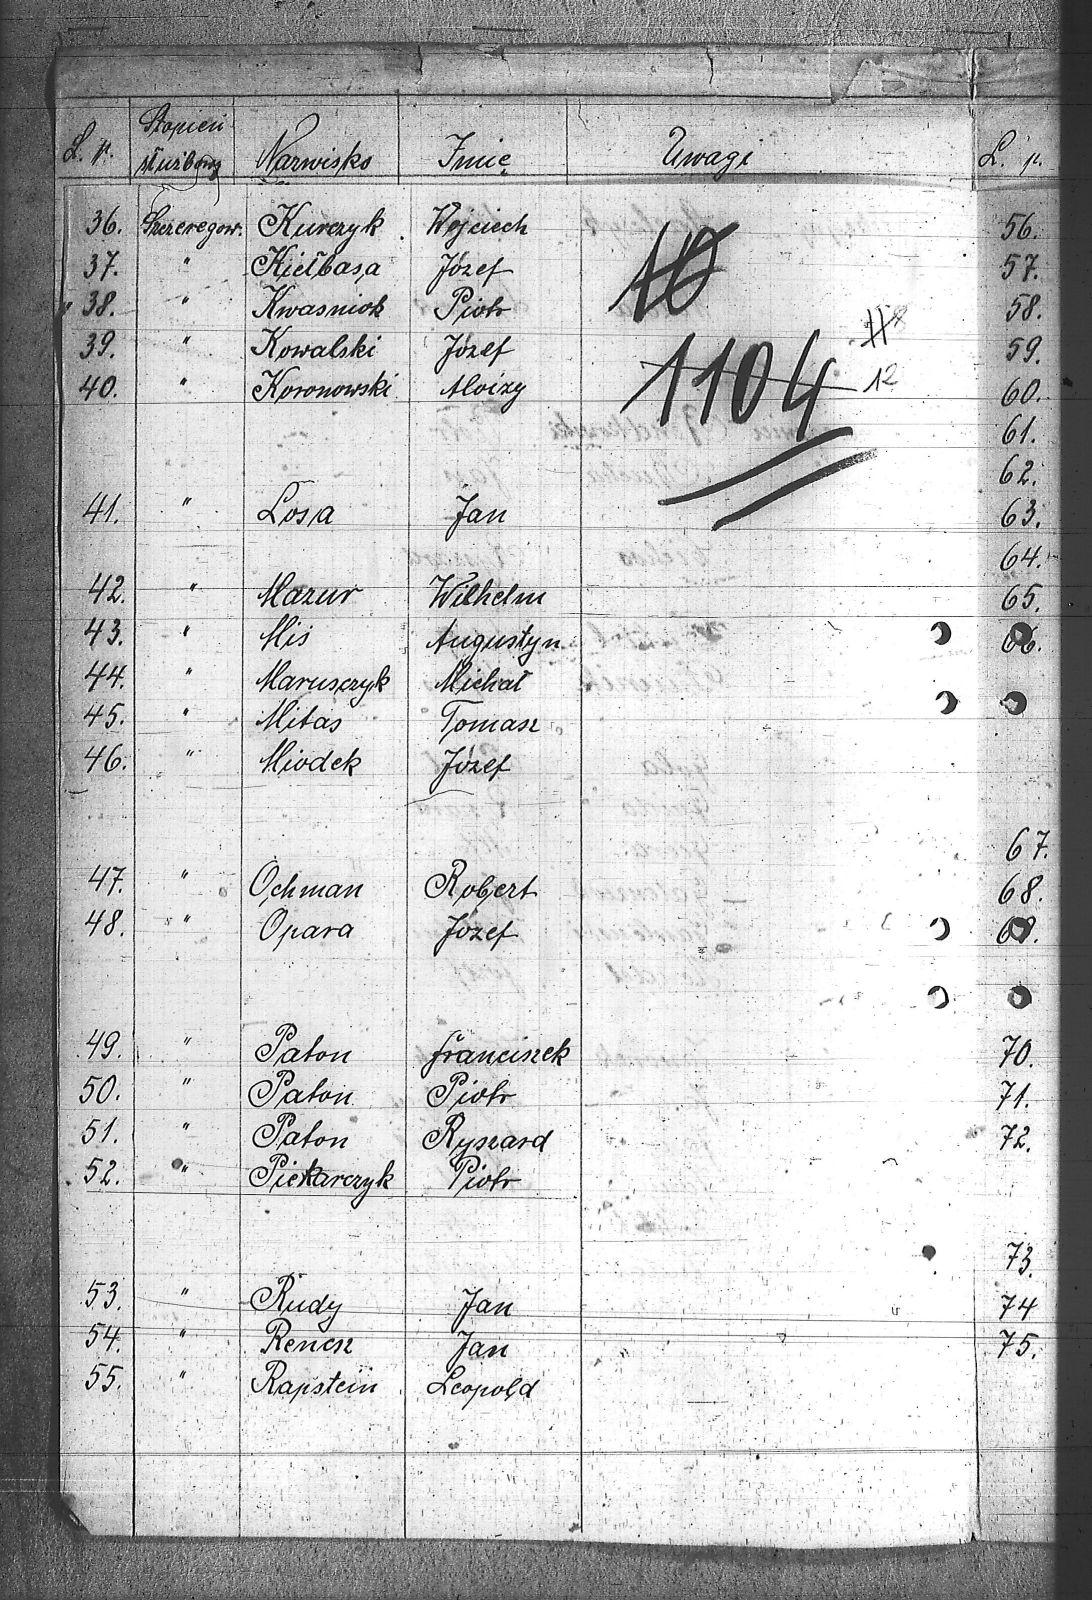 L. p. Stopień służbowy Nazwisko Imię Uwagi L. p.
36. Szeregow. Kurczyk Wojciech 56.
37. " Kiełbasa Józef 57.
" 38. " Kwasniok Piotr 58.
39. " Kowalski Józef 59.
40. " Koronowski Aloizy 60.
1104
12
61.
62.
41. " Losa Jan 63.
64.
42. " Mazur Wilhelm 65.
43. " Mis Augustyn 66.
44. " Marusczyk Michał
45. " Mitas Tomasz
46. " Miodek Józef
67.
47. " Ochman Robert 68.
48. " Opara Józef 69.
49. " Paton Franciszek 70.
50. " Paton Piotr 71.
51. " Paton Ryszard 72.
52. " Piekarczyk Piotr
73.
53. " Rudy Jan 74
54. " Rencsz Jan 75.
55. " Rapstein Leopold